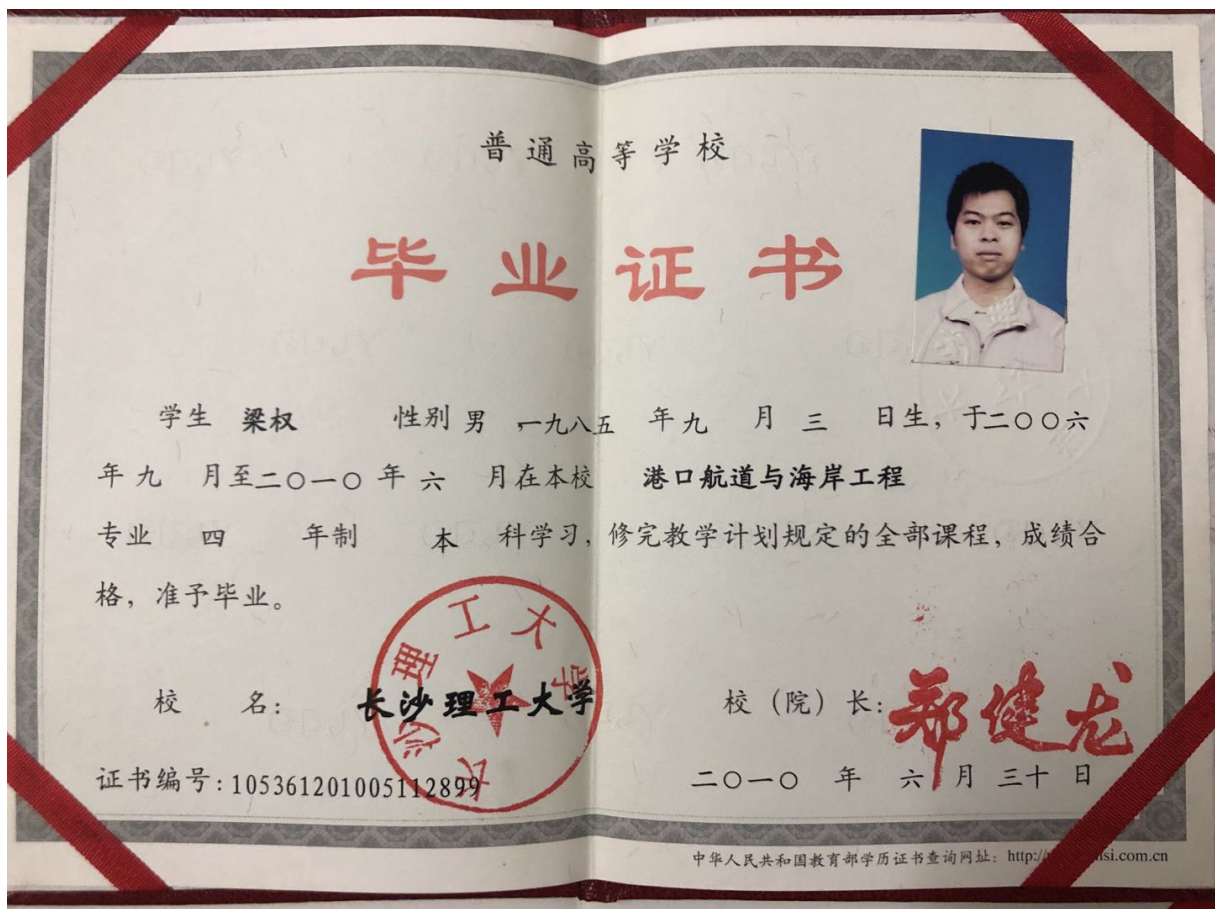 普通高等学校
毕业证书
学生 梁权 性别 男 ，一九八五 年 九 月 三 日生，于二〇〇六
年 九 月至二〇一〇 年 六 月在本校 港口航道与海岸工程
专业 四 年制 本 科学习，修完教学计划规定的全部课程，成绩合
格，准予毕业。
长沙理工大学
校 名：长沙理工大学 校（院）长：郑健龙
证书编号：105361201005112899 二〇一〇 年 六 月 三十 日
中华人民共和国教育部学历证书查询网址：http:/ si.com.cn